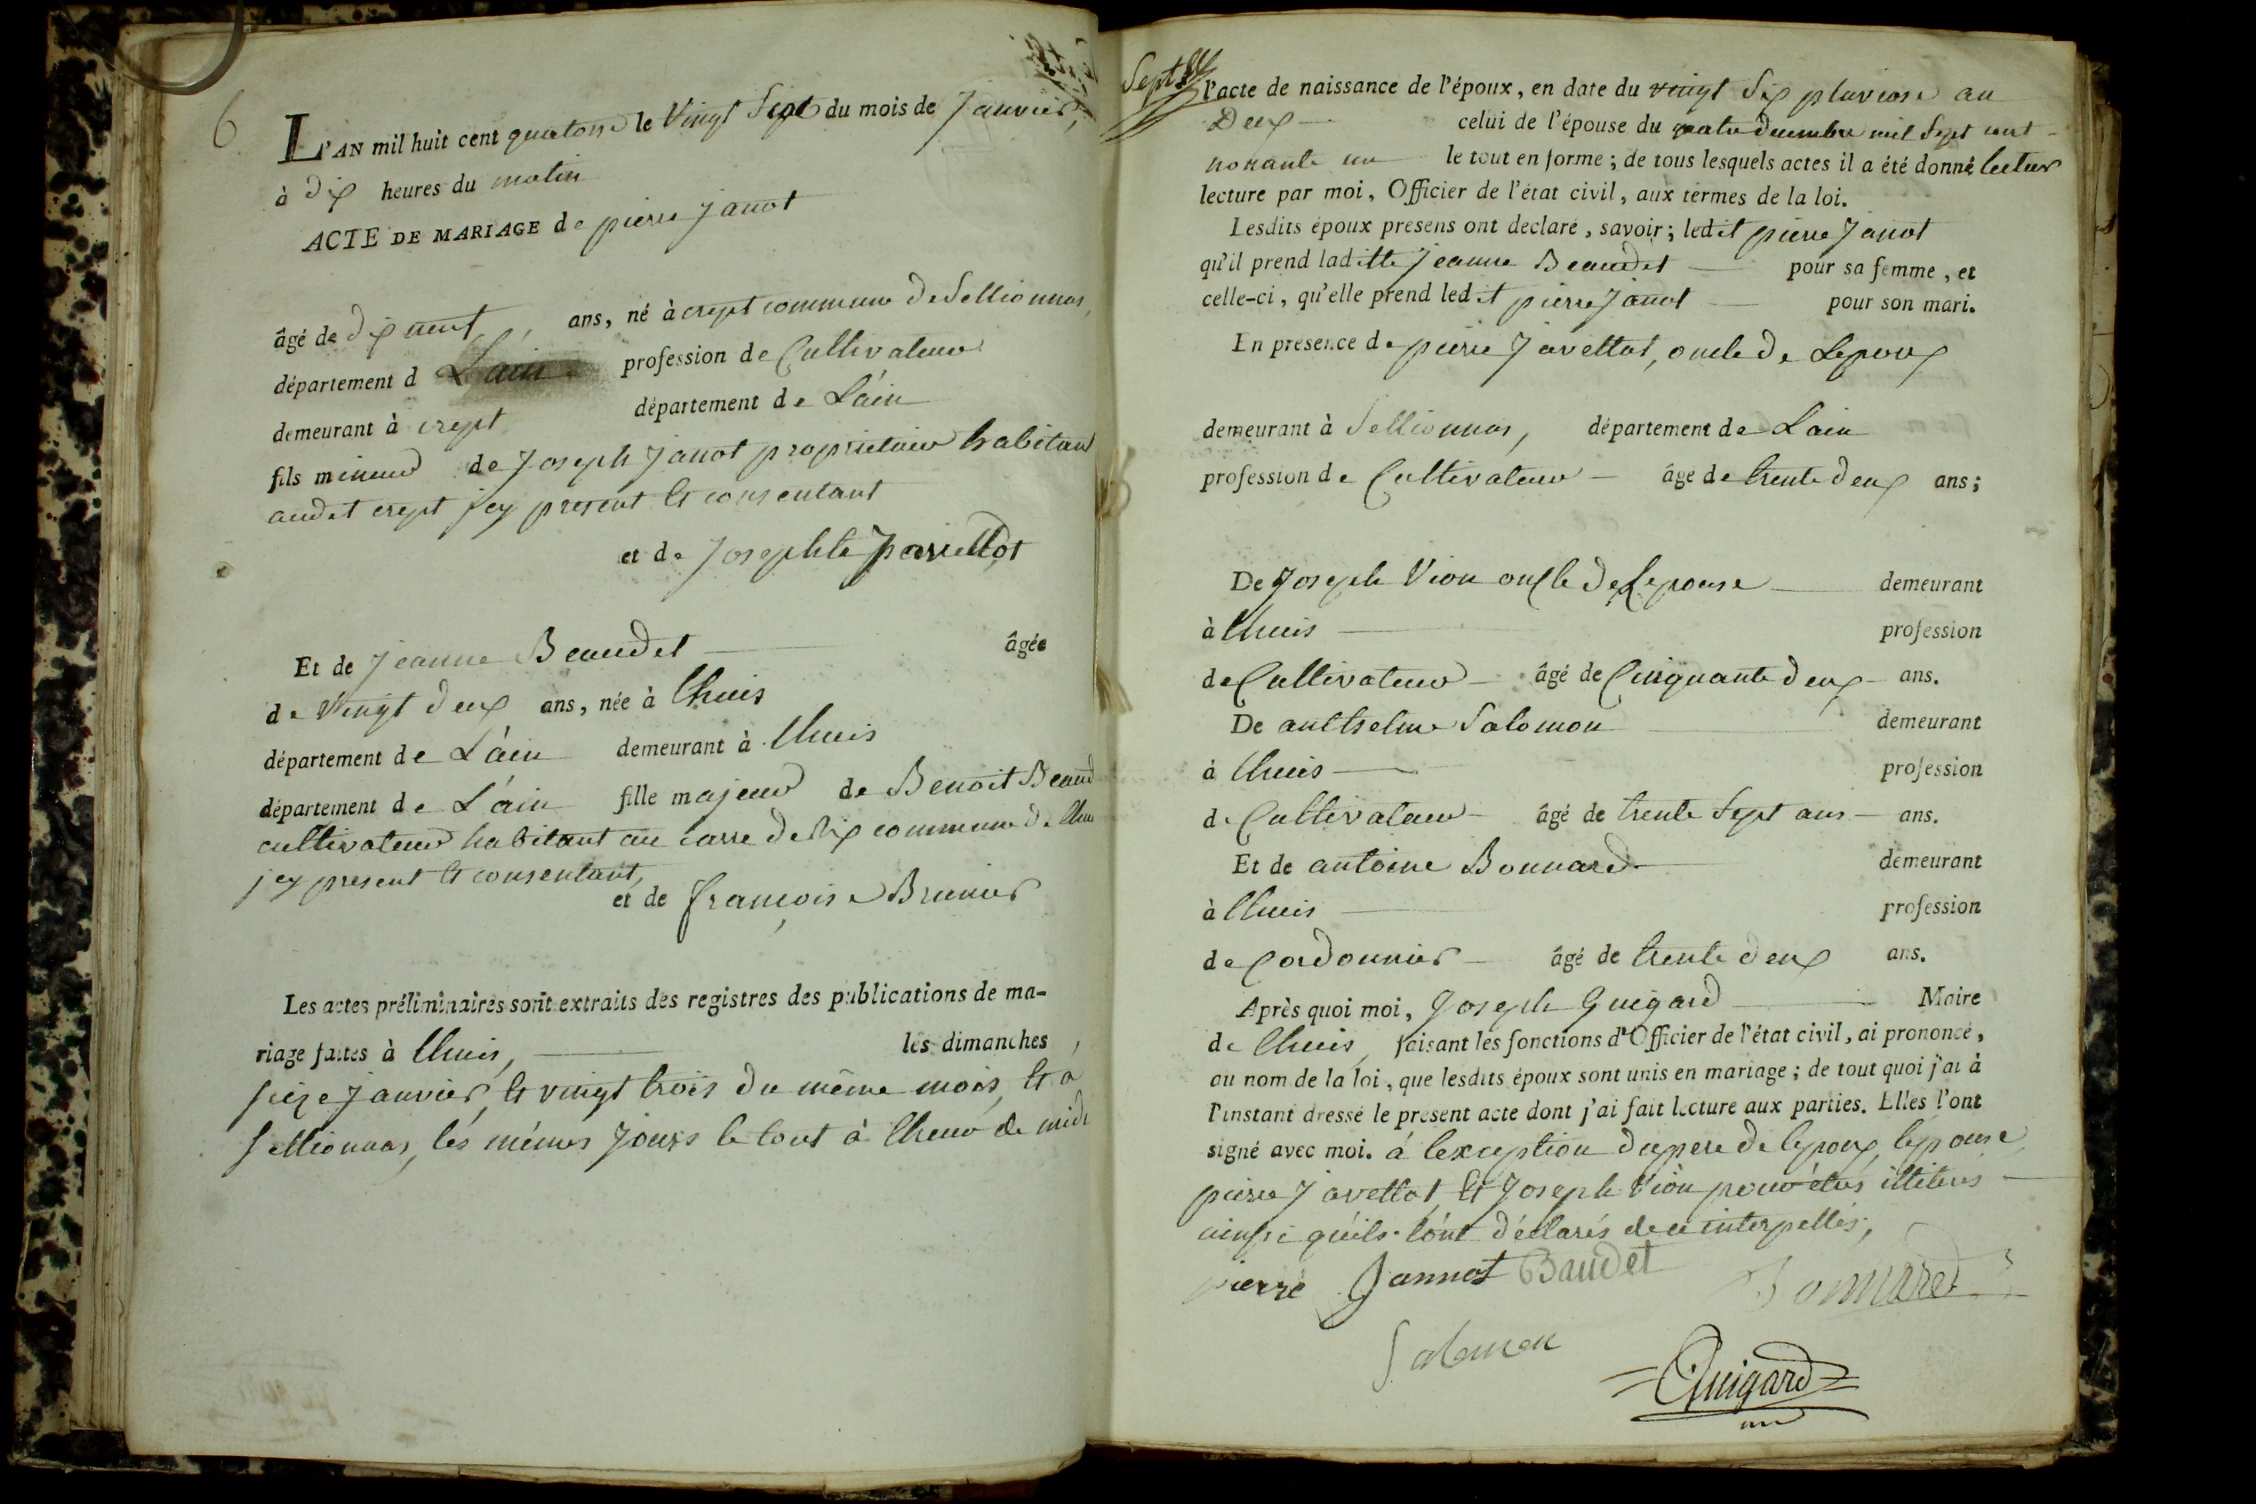 6
L'AN mil huit cent quatorze le Vingt Sept du mois de Janvier,
à dix heures du matin
ACTE DE MARIAGE de pierre Janot
âgé de dix neuf, ans, né à crept commune de Sellionnas,
département d Lain profession de Cultivateur
demeurant à crept département de L'ain
fils mineur de Joseph Janot proprietaire habitant
audit crept jcy present et consentant
et de Josephte Javettot
Et de Jeanne Beaudet âgée
de Vingt deux ans, née à Lhuis
département de L'ain demeurant à Lhuis
département de L'ain fille majeur de Benoit Beaud
cultivateur habitant au carre de Rix commune de Lhuis
jcy present et consentant,
et de françoise Brunier
Les actes préliminaires sont extraits des registres des publications de ma-
riage faites à Lhuis, les dimanches,
seize Janvier, et vingt trois du même mois, et à
Sellionnas, les mêmes Jours le tout à Lheur de midi
Sept
l'acte de naissance de l'époux, en date du vingt Six pluviose an
Deux celui de l'épouse du quatre decembre mil Sept cent
nonante un le tout en forme ; de tous lesquels actes il a été donné lecture
lecture par moi, Officier de l'état civil, aux termes de la loi.
Lesdits époux présens ont déclaré, savoir ; ledit pierre Janot
qu'il prend laditte Jeanne Beaudet pour sa femme, et
celle-ci, qu'elle prend ledit pierre Janot pour son mari.
En présence de pierre Javettot, oncle de Lepoux
demeurant à Sellionnas, département de Lain
profession de Cultivateur âgé de trente deux ans ;
De Joseph Vion oncle de Lepouse demeurant
à Lhuis profession
de Cultivateur âgé de Cinquante deux ans.
De anthelme Salomon demeurant
à Lhuis profession
de Cultivateur âgé de trente Sept ans ans.
Et de antoine Bonnard demeurant
à Lhuis profession
de Cordonnier âgé de trente deux ans.
Après quoi moi, Joseph Guigard Maire
de Lhuis, faisant les fonctions d'Officier de l'état civil, ai prononcé,
au nom de la loi, que lesdits époux sont unis en mariage ; de tout quoi j'ai à
l'instant dressé le présent acte dont j'ai fait lecture aux parties. Elles l'ont
signé avec moi. à lexception du pere de lepoux, lepouse
pierre Javettot, et Joseph Vion pour être illiterés
ainsi quils lont déclarés de ce interpellés,
pierre Jannot Baudet Bonnard
Salomon
Guigard